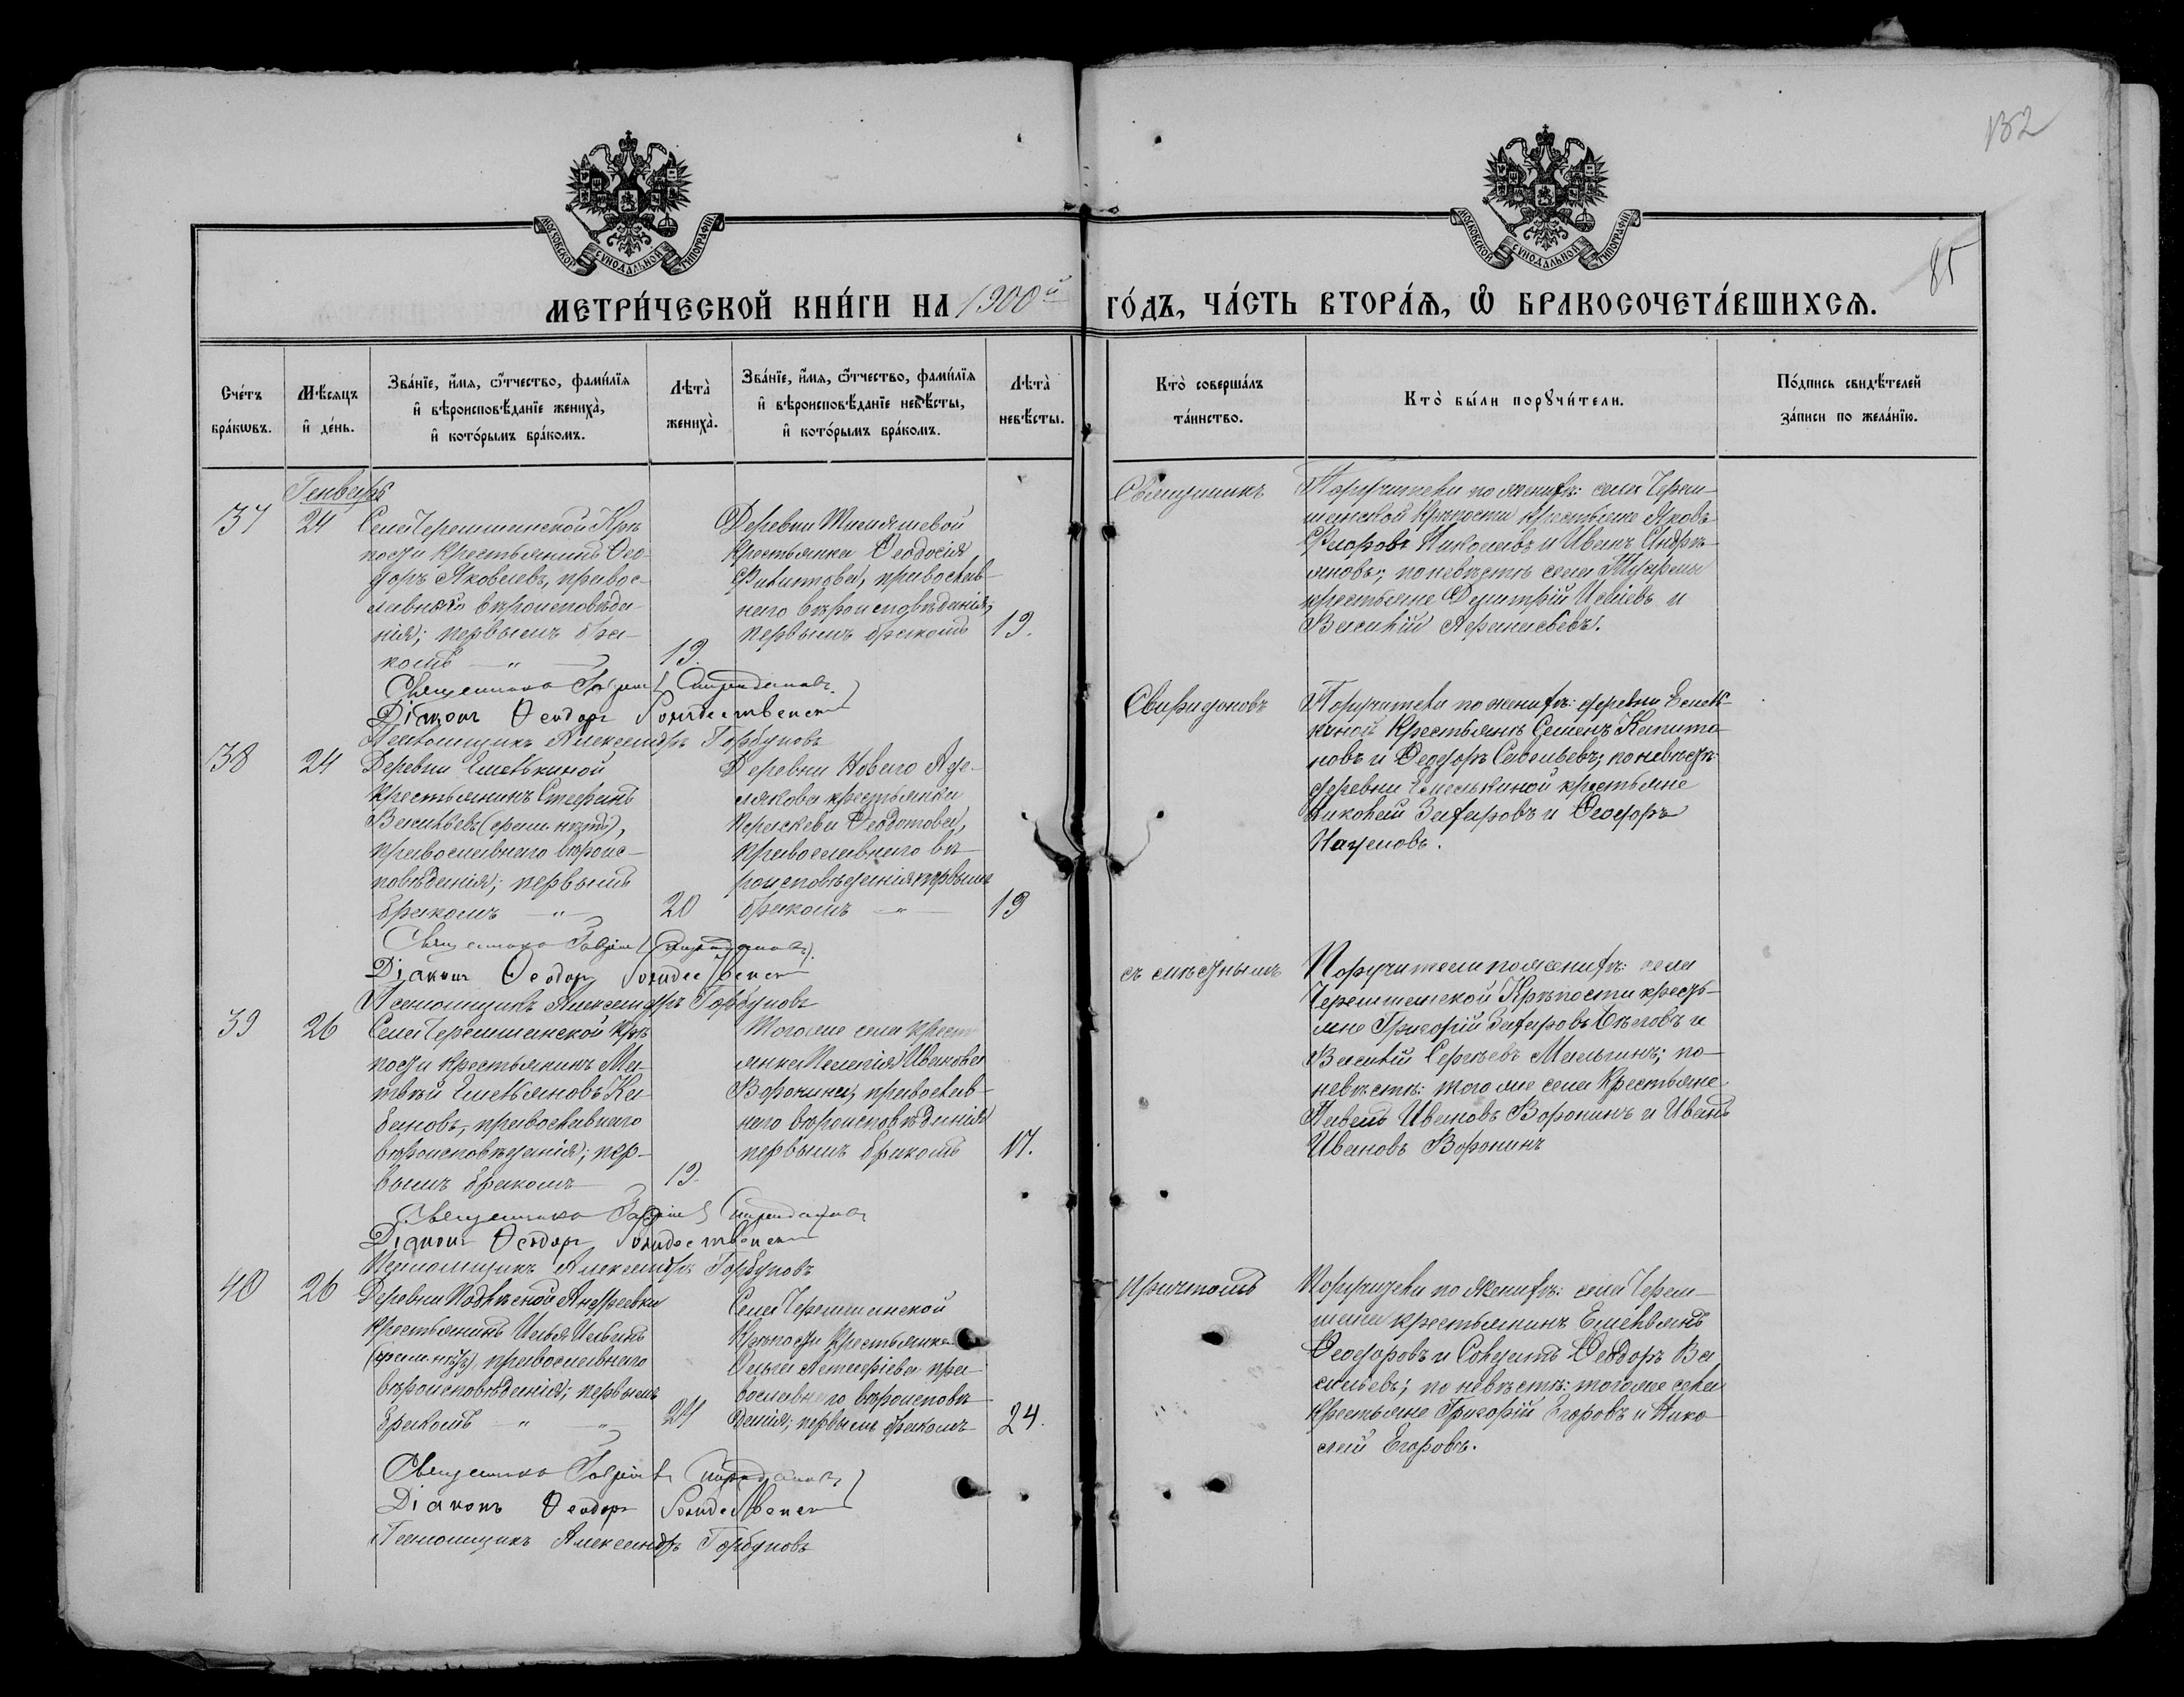 132
85
МОСКОВСКОЙ СѴНОДАЛЬНОЙ ТИПОГРАФІИ
МОСКОВСКОЙ СѴНОДАЛЬНОЙ ТИПОГРАФІИ
МЕТРИ́ЧЕСКОЙ КНИ́ГИ НА 1900й ГО́ДЪ, ЧА́СТЬ ВТОРА́Я, Ѡ БРАКОСОЧЕТА́ВШИХСЯ.
Сче́тъ
бра́кѡвъ.
Мѣ́сяцъ
и҆ де́нь.
Зва́нїе, и҆́мя, ѻ҆́тчество, фами́лїя
и҆ вѣроисповѣ́данїе жениха̀,
и҆ кото́рымъ бра́комъ.
Лѣта̀
жениха̀.
Зва́нїе, и҆́мя, ѻ҆́тчество, фами́лїя
и҆ вѣроисповѣ́данїе невѣ́сты,
и҆ кото́рымъ бра́комъ.
Лѣта̀
невѣ́сты.
Кто̀ соверша́лъ
та́инство.
Кто̀ бы́ли порꙋчи́тели.
По́дпись свидѣ́телей
за́писи по жела́нїю.
Генварь
37
24
Села Черемшанской Крѣ
пости крестьянинъ Ѳео-
доръ Яковлевъ, правос-
лавнаго вѣроисповѣда-
нія; первымъ бра-
комъ — „ —
19.
Деревни
крестьянка Ѳеодосія
Филиппова, православ-
наго вѣроисповѣданія,
первымъ бракомъ
19.
Священникъ
Поручители по женихѣ: села Черем-
шанской Крѣпости крестьяне Яковъ
Николаевъ и Иванъ Андре-
яновъ; по невѣстѣ села
крестьяне Димитрій и
Василій Аѳанасьевъ.
Священникъ Гавріилъ Спиридоновъ
Діаконъ Ѳеодоръ Рождественскій
Псаломщикъ Александръ Горбуновъ
38
24
Деревни Емелькиной
крестьянинъ Стефанъ
Васильевъ (фам. нѣтъ),
православнаго вѣроис-
повѣданія; первымъ
бракомъ — „ —
20
Деревни Новаго Аде-
лякова крестьянка
Параскева Ѳеодотова,
православнаго вѣ-
роисповѣданія первымъ
бракомъ — „ —
19
Свиридоновъ
Поручители по женихѣ: деревни Емель-
киной крестьяне Семенъ Капито-
новъ и Ѳеодоръ Савельевъ; по невѣстѣ
деревни Емелькиной крестьяне
Николай Захаровъ и Ѳеодоръ
Наумовъ.
Священникъ Гавріилъ Спиридоновъ
Діаконъ Ѳеодоръ Рождественскій
Псаломщикъ Александръ Горбуновъ
39
26
Села Черемшанской Крѣ
пости крестьянинъ Ма-
твѣй Емельяновъ Ка-
бановъ, православнаго
вѣроисповѣданія; пер-
вымъ бракомъ
19.
Того же села крест
янка Пелагія Иванова
Воронина, православ-
наго вѣроисповѣданія
первымъ бракомъ
17.
съ мѣстнымъ
Поручители по женихѣ: села
Черемшанской Крѣпости кресть-
яне Григорій Захаровъ Бѣловъ и
Василій Сергѣевъ; по
невѣстѣ: того же села крестьяне
Павелъ Ивановъ Воронинъ и Иванъ
Ивановъ Воронинъ
Священникъ Гавріилъ Спиридоновъ
Діаконъ Ѳеодоръ Рождественскій
Псаломщикъ Александръ Горбуновъ
40
26
Деревни Подлѣсной Андреевки
крестьянинъ Илья Ильинъ
(фам. нѣтъ) православнаго
вѣроисповѣданія; первымъ
бракомъ — „ — „
24
Села Черемшанской
Крѣпости крестьянка
Ольга пра-
вославнаго вѣроисповѣ
данія; первымъ бракомъ
24.
причтомъ
Поручители по женихѣ: села Черем-
шана крестьянинъ Емельянъ
Ѳеодоровъ и Солдатъ Ѳеодоръ Ва
сильевъ; по невѣстѣ: того же села
крестьяне Григорій Егоровъ и Нико
лай Егоровъ.
Священникъ Гавріилъ Спиридоновъ
Діаконъ Ѳеодоръ Рождественскій
Псаломщикъ Александръ Горбуновъ